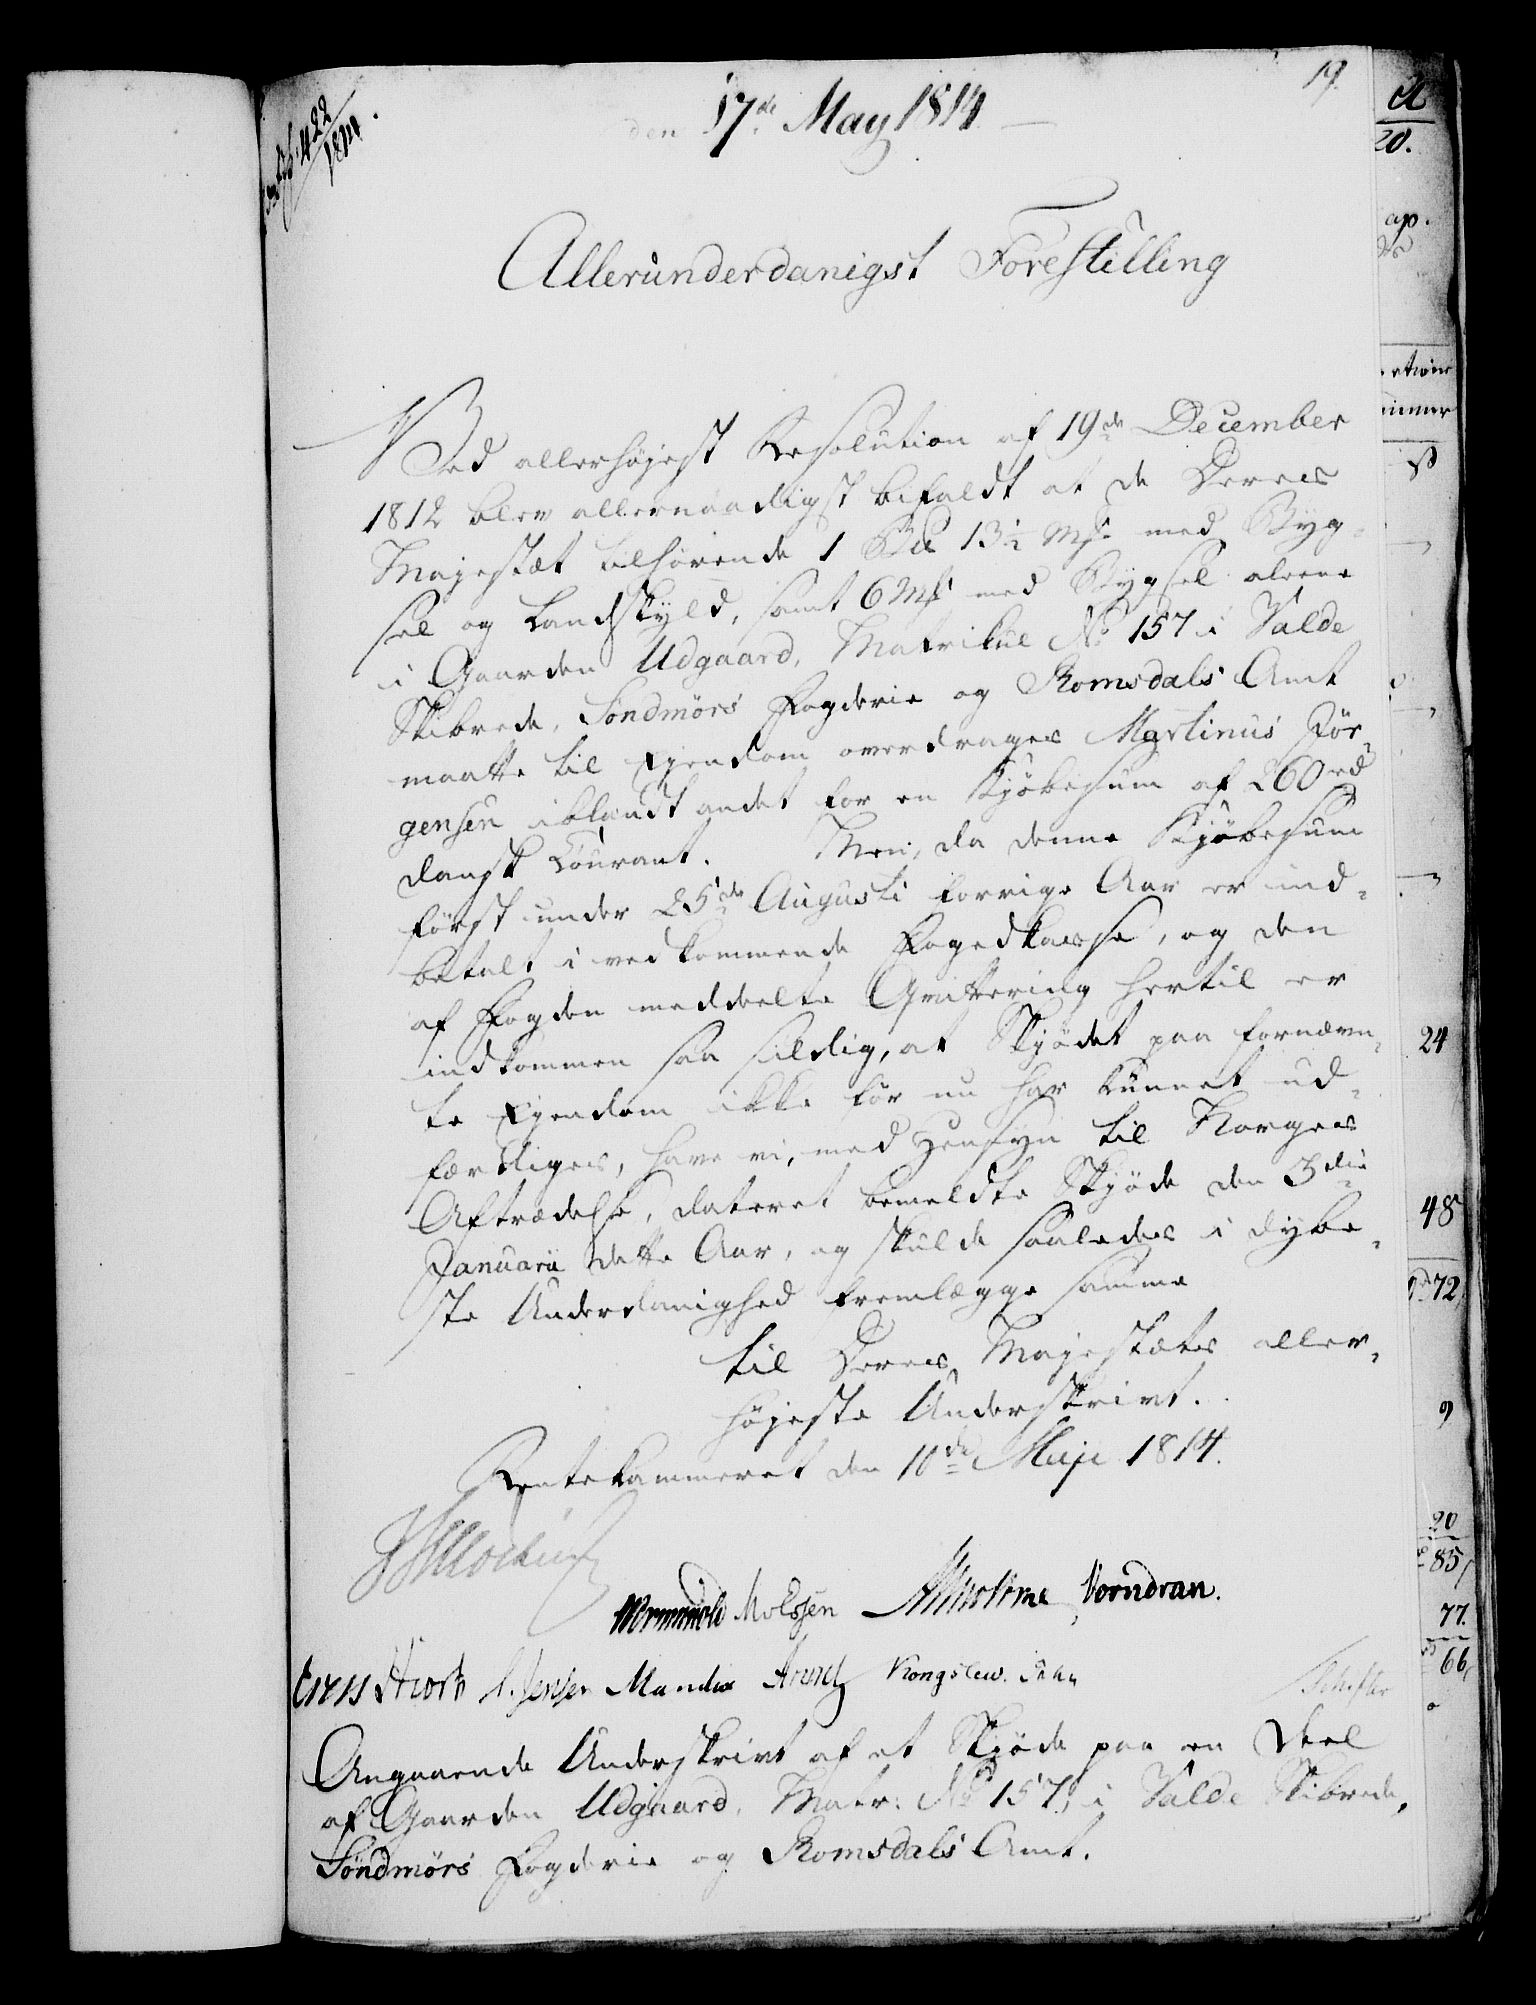 19.
den 17de May 1814
422
1814.
Allerunderdanigst Forestilling
Ved allerhøjest Resolution af 19de December
1812 blev allernaadigst bifaldt at de Deres
Majestæt tilhørende 1 13½ Mk. med Byg-
sel og Landskyld, samt 6 Mk med Bygsel alene
i Gaarden Udgaard, Matrikul No 157 i Valde
Skibrede, Søndmørs Fogderie og Romsdals Amt
maatte til Ejendom overdrages Martinus Jör-
gensen iblandt andet for en Kjøbesum af 260 rd
dansk Courant. Men, da denne Kjøbesum
først under 25de Augusti forrige Aar er ind-
betalt i vedkommende Fogedkasse, og den
af Fogden meddeelte Qvittering hertil er
indkommen saa sildig, at Skjødet paa fornævn-
te Ejendom ikke før nu har kunnet ud-
færdiges, have vi, med Hensyn til Norges
Aftrædelse, dateret bemeldte Skjøde den 3die
Januarii dette Aar, og skulde saaledes i dybe-
ste Underdanighed fremlægge samme
til Deres Majestæts aller-
højeste Underskrivt.
Rentekammeret den 10de Maji 1814.
Wormskiold Monrad Vorndran.
Hiort Jensen Mandix Arentz Kongslew.
Angaaende Underskrivt af et Skjøde paa en Deel
af Gaarden Udgaard, Matr: No 157, i Valde Skibrede,
Søndmørs Fogderie og Romsdals Amt.
20.
24
48
72
9
20
85
77.
66